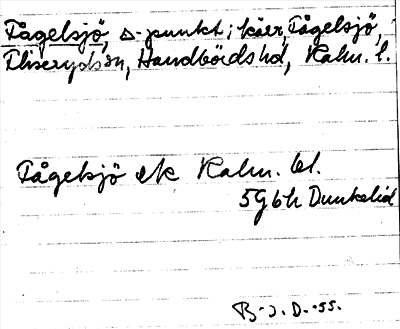 Fågelsjö, △-punkt i kärr, Fågelsjö,
Fliseryds sn, Handbörds hd, Kalm. l.
Fågelsjö ek Kalm. bl.
5G6h Dunkelid
B-J. D. -55.